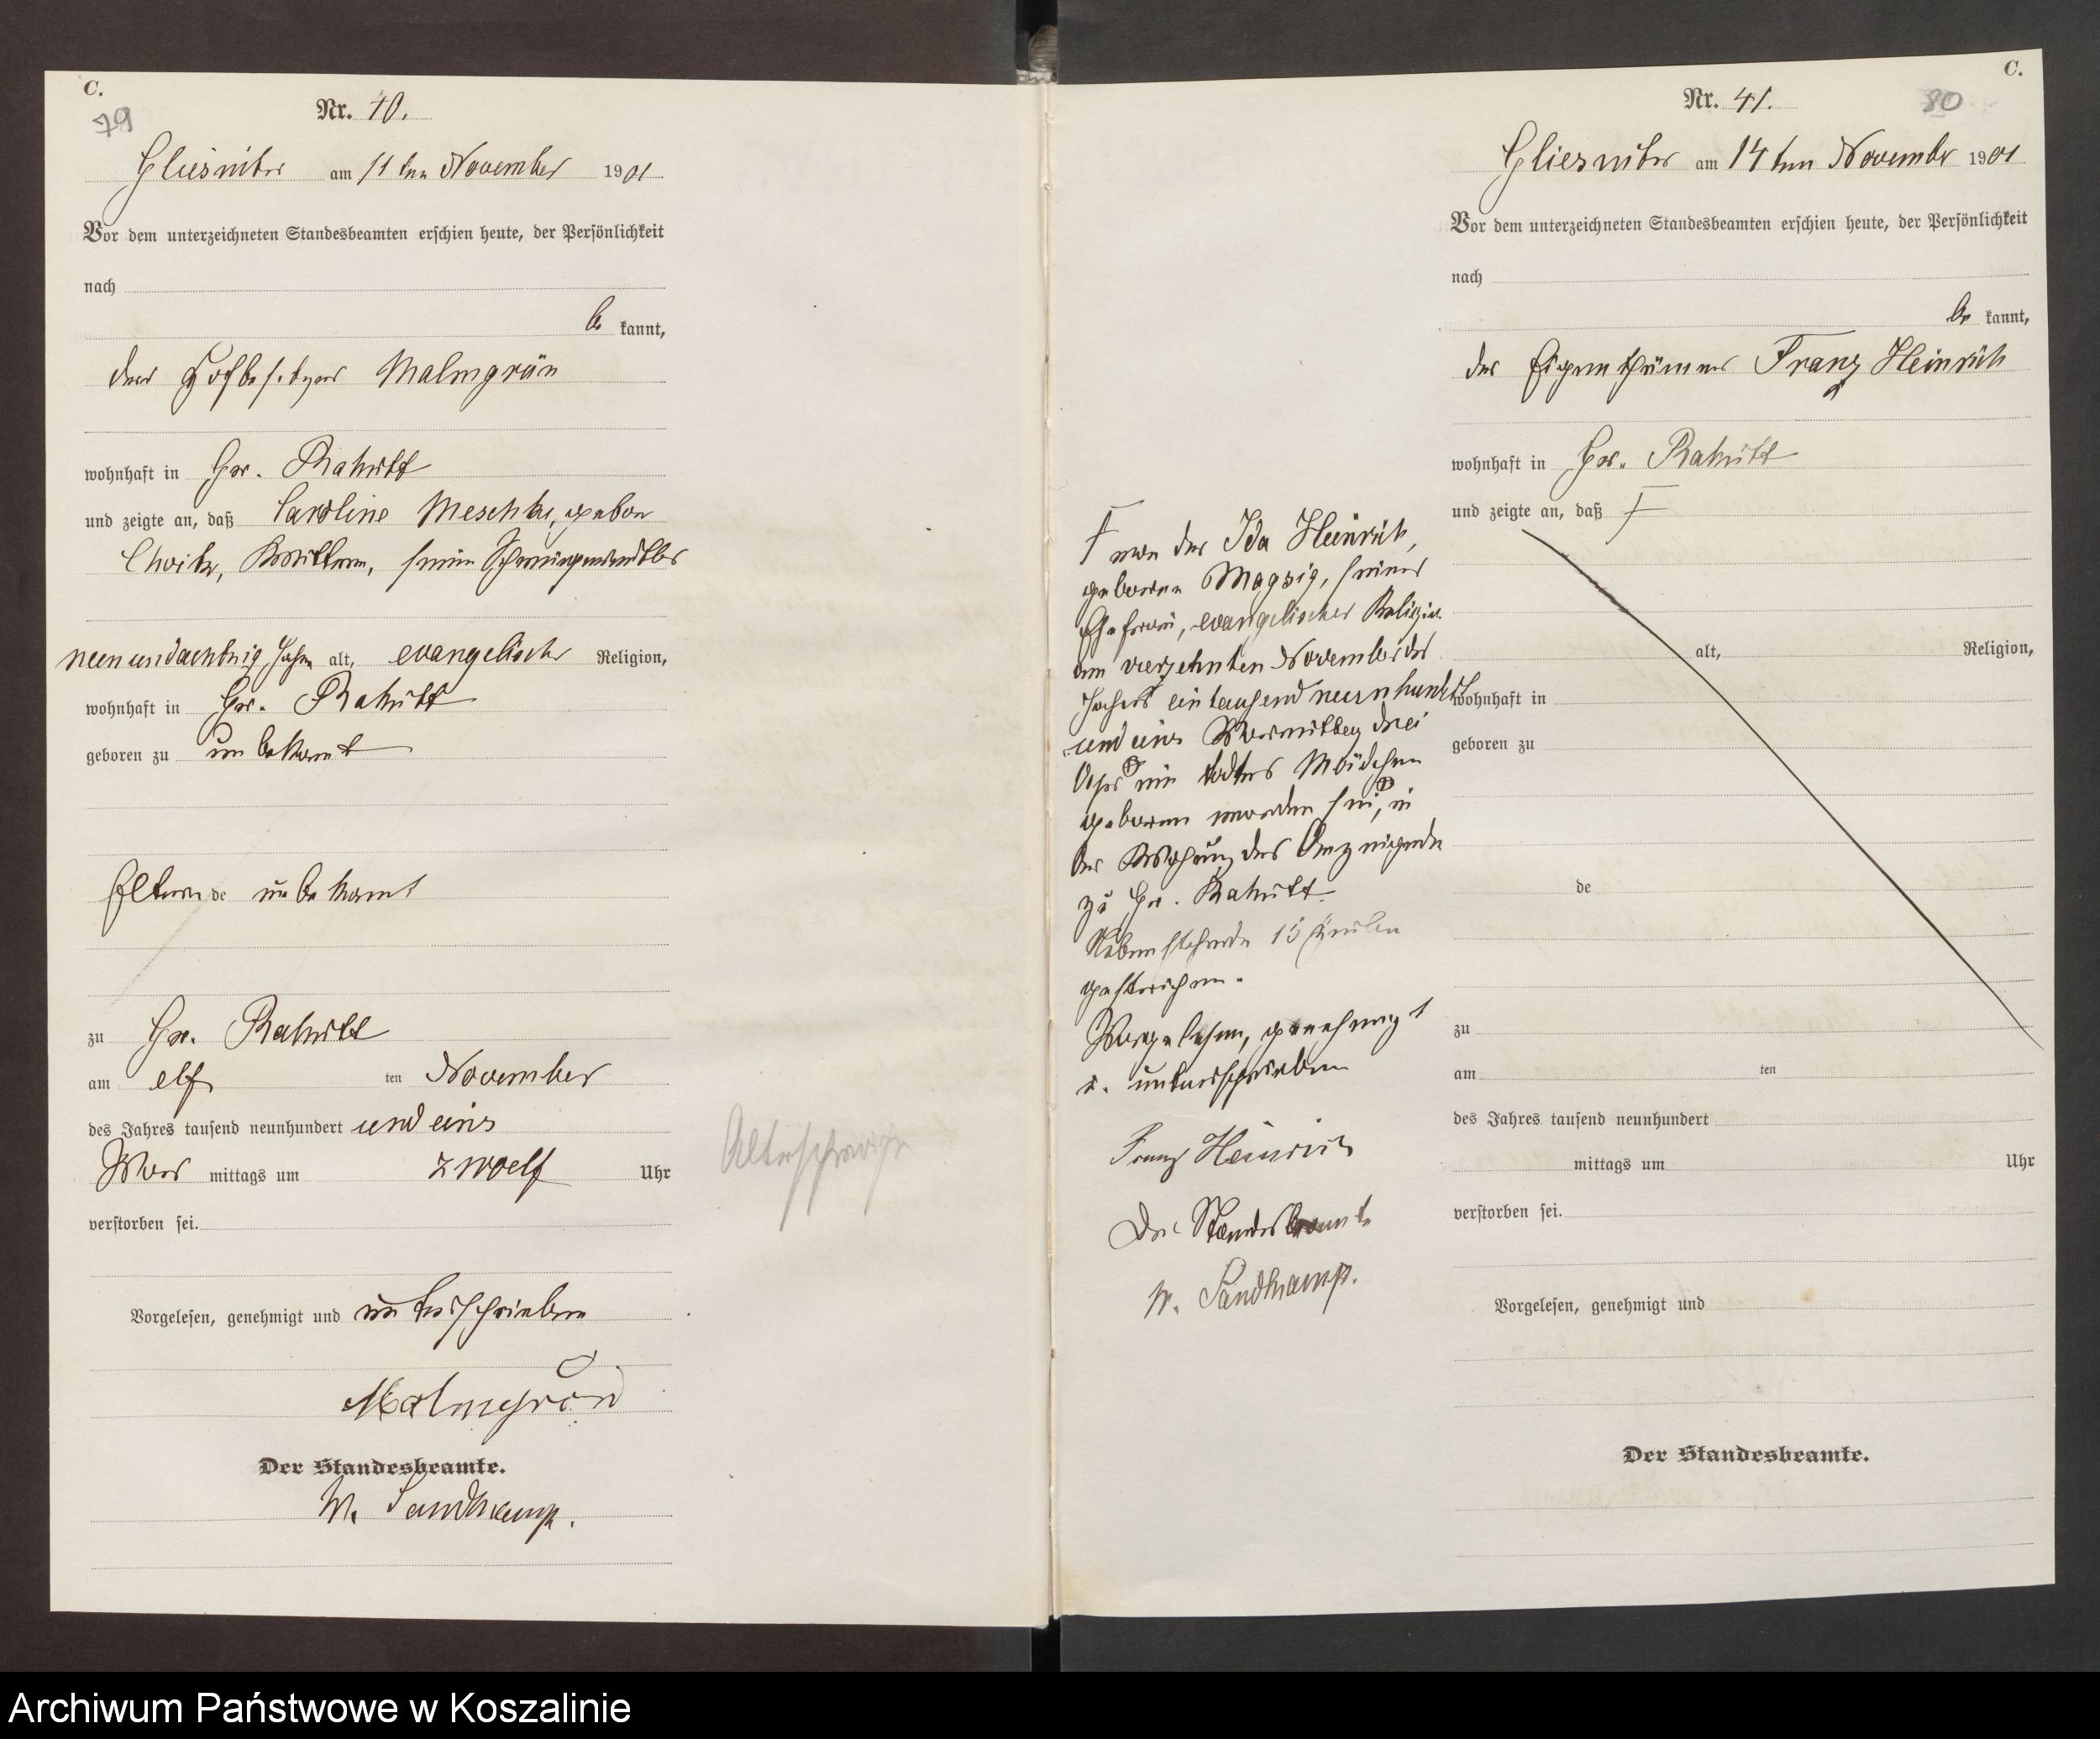 C.
79
Nr. 40.
Gliesnitz am 11 ten November 1901
Vor dem unterzeichneten Standesbeamten erschien heute, der Persönlichkeit
nach
be kannt,
der Hofbesitzer Malmgrön
wohnhaft in Gr. Rakitt
und zeigte an, daß Caroline Meschke, gebor
Wittwe, seine Schwiegermutter
neunundachtzig Jahre alt, evangelischer Religion,
wohnhaft in Gr. Rakitt
geboren zu unbekannt
Eltern de unbekannt
zu Gr. Rakitt
am elf ten November
des Jahres tausend neunhundert und eins
Vor mittags um zwoelf Uhr
verstorben sei.
Vorgelesen, genehmigt und unterschrieben
Malmgrön
Der Standesbeamte.
W. Sandkamp.
Altersschwäche
C.
Nr. 41.
80
Gliesnitz am 14 ten November 1901
Vor dem unterzeichneten Standesbeamten erschien heute, der Persönlichkeit
nach
be kannt,
der Eigenthümer Franz Heinrich
wohnhaft in Gr. Rakitt
und zeigte an, daß F
alt, Religion,
wohnhaft in
geboren zu
de
zu
am ten
des Jahres tausend neunhundert
mittags um Uhr
verstorben sei.
Vorgelesen, genehmigt und
Der Standesbeamte.
F von der Ida Heinrich,
geborene Magsig, seiner
Ehefrau, evangelischer Religion
am vierzehnten November des
Jahres eintausend neunhundert
und eins Vormittag drei
Uhr ein todtes Mädchen
geboren worden sei, in
der Wohnung des Anzeigende
zu Gr. Rakitt.
Nebenstehende 15 Zeilen
gestrichen.
Vorgelesen, genehmigt
u. unterschrieben
Franz Heinrich
Der Standesbeamte
W. Sandkamp.
Archiwum Państwowe w Koszalinie